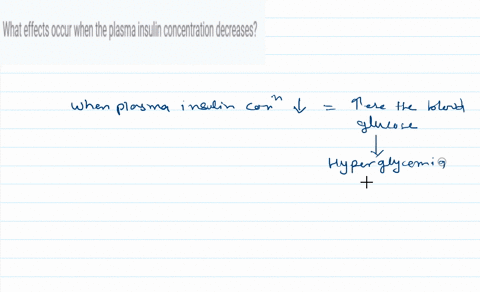 What effects occur when the plasma insulin concentration decreases?
when plasma insulin conⁿ ↓ = ↑ese the blood
glucose
↓
Hyperglycemia